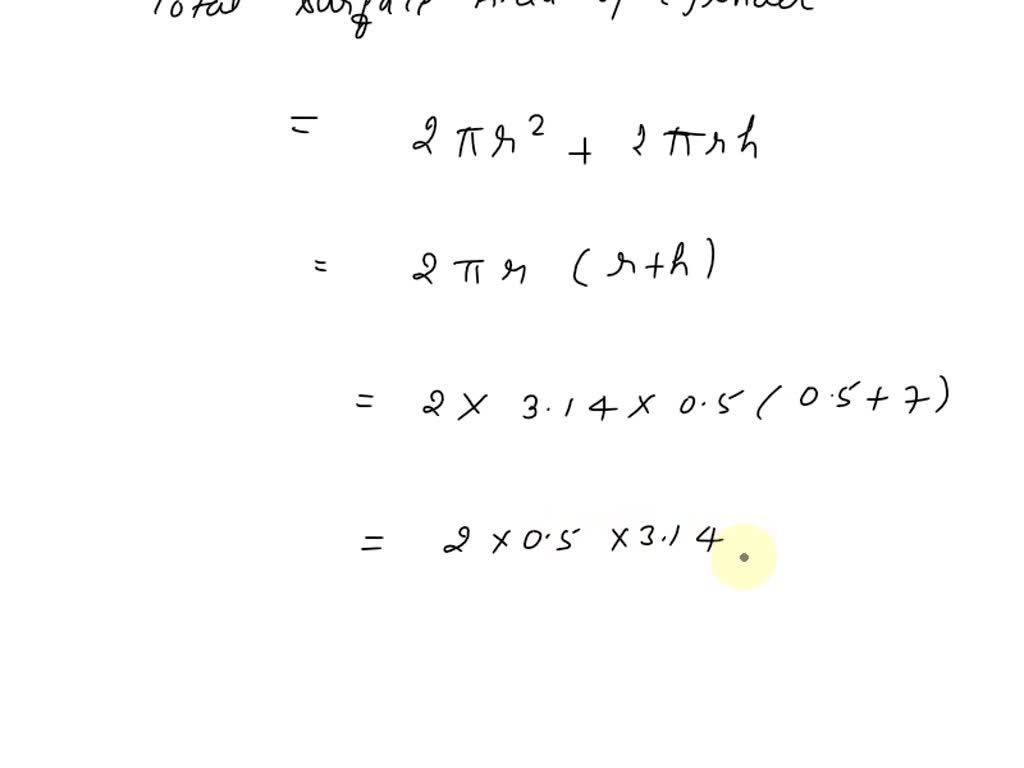 Total Surface Area of Cylinder
= 2πr² + 2πrh
= 2πr (r+h)
= 2 × 3.14 × 0.5 (0.5 + 7)
= 2 × 0.5 × 3.14